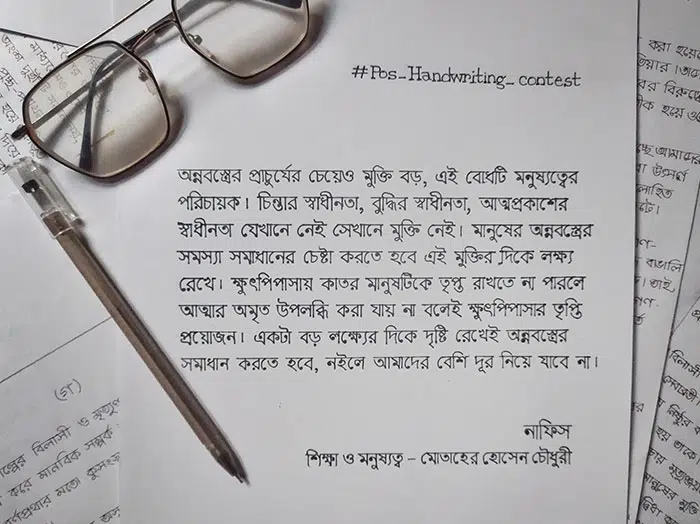 #Pos_Handwriting_contest
অন্নবস্ত্রের প্রাচুর্যের চেয়েও মুক্তি বড়, এই বোধটি মনুষ্যত্বের
পরিচায়ক। চিন্তার স্বাধীনতা, বুদ্ধির স্বাধীনতা, আত্মপ্রকাশের
স্বাধীনতা যেখানে নেই সেখানে মুক্তি নেই। মানুষের অন্নবস্ত্রের
সমস্যা সমাধানের চেষ্টা করতে হবে এই মুক্তির দিকে লক্ষ্য
রেখে। ক্ষুৎপিপাসায় কাতর মানুষটিকে তৃপ্ত রাখতে না পারলে
আত্মার অমৃত উপলব্ধি করা যায় না বলেই ক্ষুৎপিপাসার তৃপ্তি
প্রয়োজন। একটা বড় লক্ষ্যের দিকে দৃষ্টি রেখেই অন্নবস্ত্রের
সমাধান করতে হবে, নইলে আমাদের বেশি দূর নিয়ে যাবে না।
নাফিস
শিক্ষা ও মনুষ্যত্ব - মোতাহের হোসেন চৌধুরী
(গ)
বিলাসী ও
করে মানবিক সম্পর্ক
করা হয়েছে
বিরুদ্ধে
আমাদের
বাঙালি